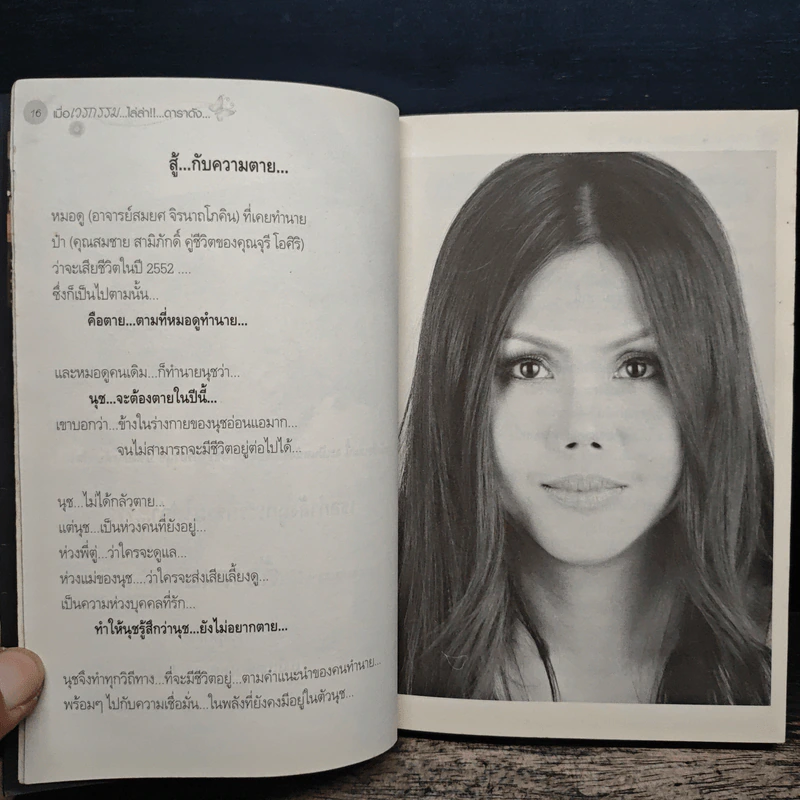 16 เมื่อเวรกรรม...ไล่ล่า!!...ดาราดัง...
สู้...กับความตาย...
หมอดู (อาจารย์สมยศ จิรนาถโภคิน) ที่เคยทำนาย
ป๋า (คุณสมชาย สามิภักดิ์ คู่ชีวิตของคุณจุรี โอศิริ)
ว่าจะเสียชีวิตในปี 2552 ....
ซึ่งก็เป็นไปตามนั้น...
คือตาย...ตามที่หมอดูทำนาย...
และหมอดูคนเดิม...ก็ทำนายนุชว่า...
นุช...จะต้องตายในปีนี้...
เขาบอกว่า...ข้างในร่างกายของนุชอ่อนแอมาก...
จนไม่สามารถจะมีชีวิตอยู่ต่อไปได้...
นุช...ไม่ได้กลัวตาย...
แต่นุช...เป็นห่วงคนที่ยังอยู่...
ห่วงพี่ตู่...ว่าใครจะดูแล...
ห่วงแม่ของนุช....ว่าใครจะส่งเสียเลี้ยงดู...
เป็นความห่วงบุคคลที่รัก...
ทำให้นุชรู้สึกว่านุช...ยังไม่อยากตาย...
นุชจึงทำทุกวิถีทาง...ที่จะมีชีวิตอยู่...ตามคำแนะนำของคนทำนาย...
พร้อมๆ ไปกับความเชื่อมั่น...ในพลังที่ยังคงมีอยู่ในตัวนุช...